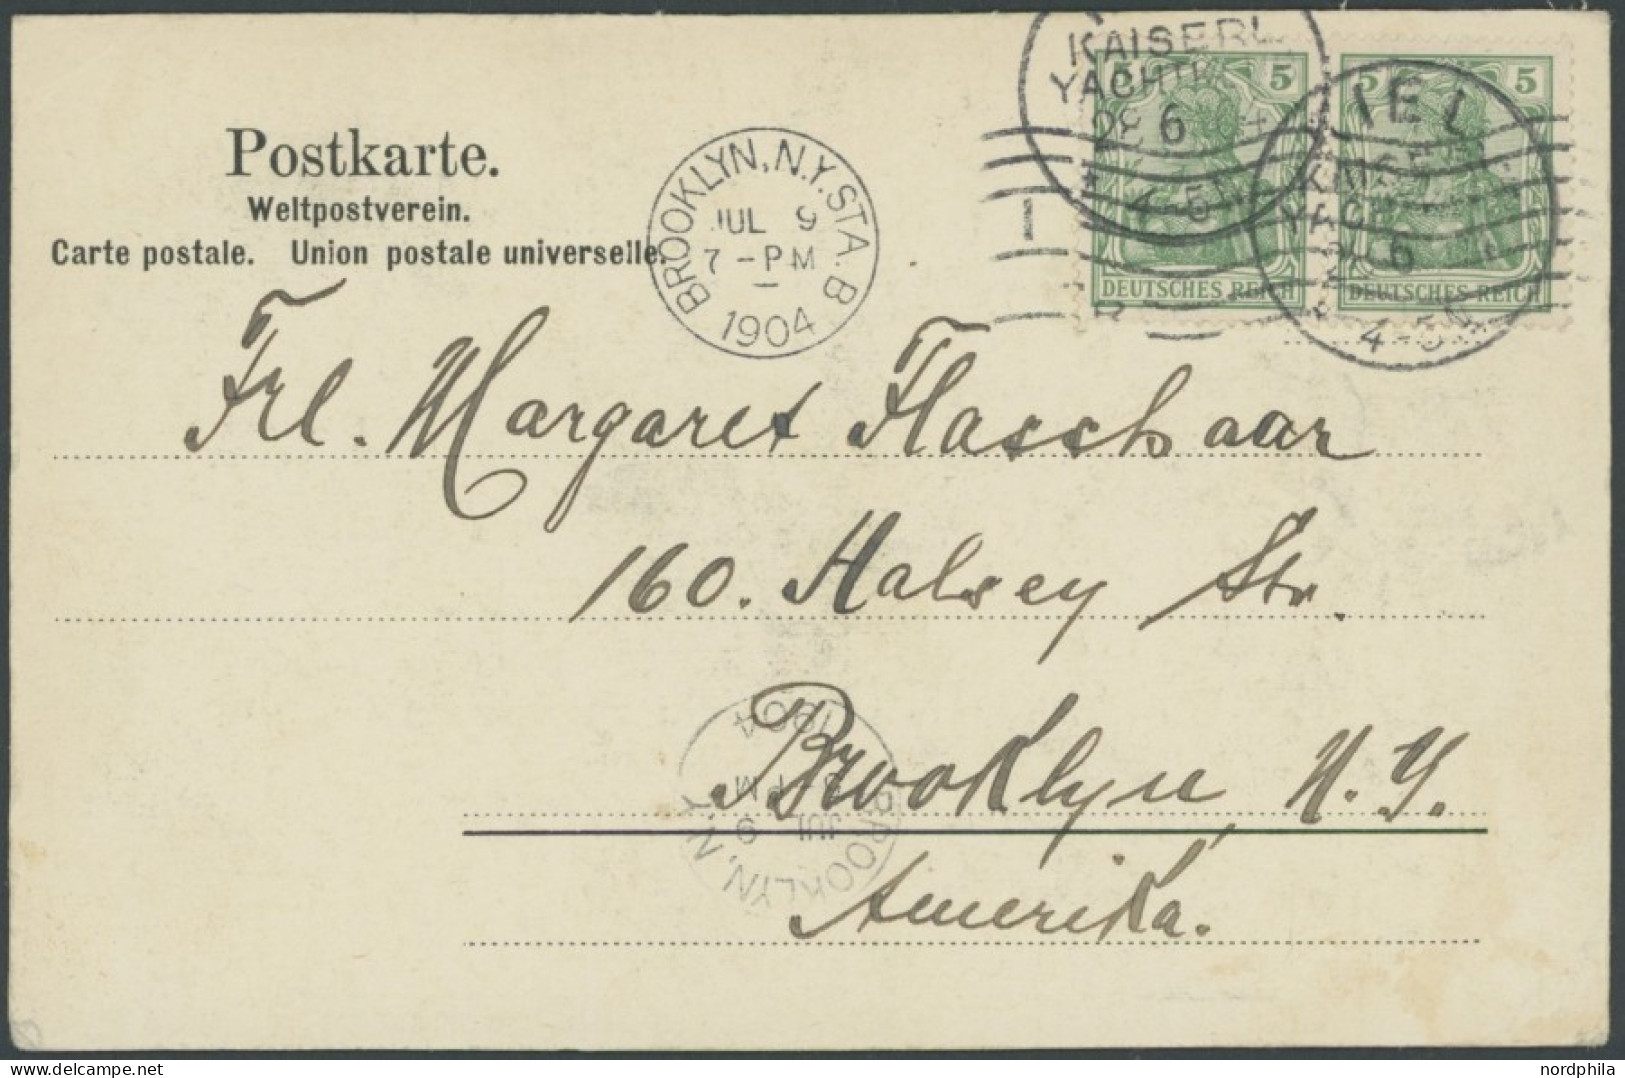 KAISERL
YACHT
6
4-5
5 5
DEUTSCHES REICH
IEL
YACH
6
5 5
DEUTSCHES REICH
Postkarte.
Weltpostverein.
Carte postale. Union postale universelle.
BROOKLYN, N.Y. STA. B
JUL 9
7-PM
1904
Frl. Margaret Flasschaar
160. Halsey Str.
Brooklyn N. Y.
Amerika.
BROOKLYN, N.Y.
JUL 9
PM
1904
nordphila